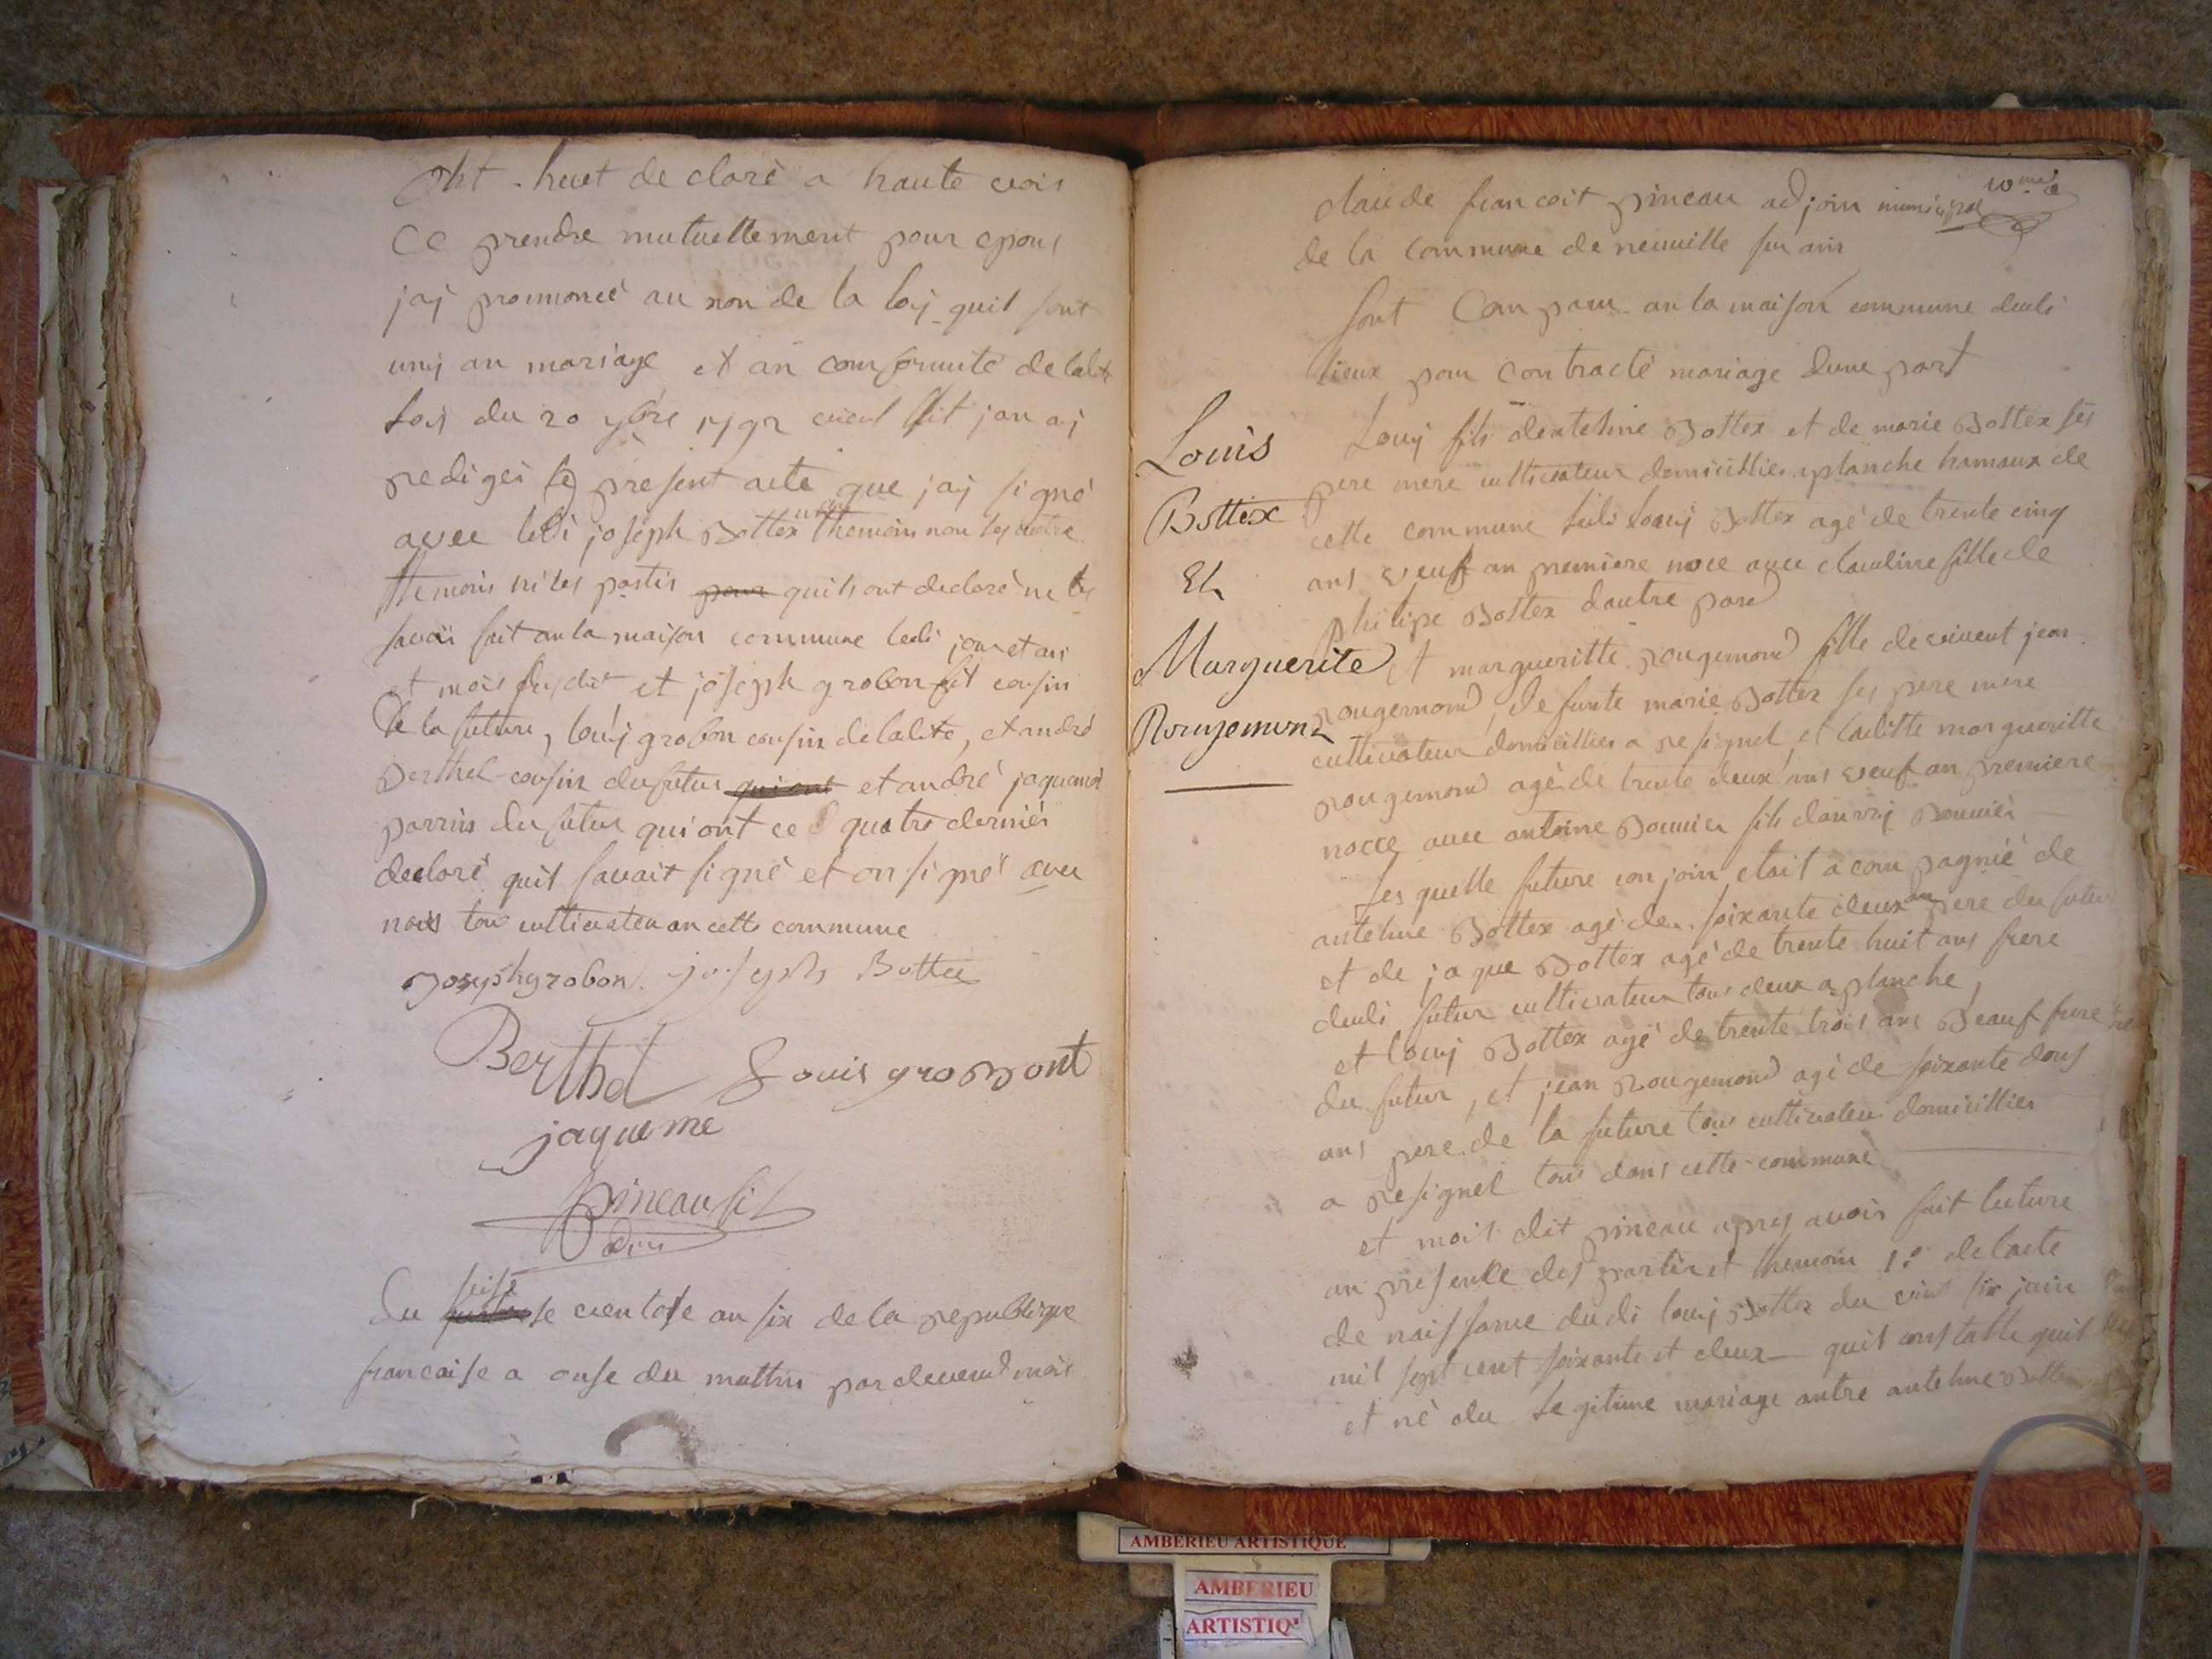 Ont heut declarè a haute vois
Ce prendre mutuellement pour epous
jaj prononcé au non de la loy quil sont
unij an mariage et an conformité delalite
Lois du 20 1792 jan aj
redigei le present acte que jaj signé
avec ledi joseph Bottex themoin non les
themois ni les partis pour quils ont declaré ne les
savoir fait an la maison commune ledi jour et an
et mois susdit et joseph grobon fils cousin
De la future, louij grobon cousin delalite, et andré
Berthet cousin dufutur qui ont et andré jaquemé
parrin du futur qui ont ce quatre dernier
declaré quil savait signé et on signé avec
nous tou cultivateu an cette commune
Josephgrobon. joseph Bottex
Berthet Louis grobont
jaqueme
pineau fils
adj
seise
Du se ventose an six de la republique
francaise a onse du mattin par devend mois
claude francoit pineau adjoin municipal
10me
de la commune de neuville sur ain
sont Comparu an la maison commune dudi
lieux pour contracté mariage dune part
Louis
Bottex
Et
Marguerite
Rougemont
Louij fils dantelme Bottex et de marie Bottex ses
pere mere cultivateur domicillier a planche hamaux de
cette commune ledi louij Bottex agé de trente cinq
ans veuf an premiere noce avec claudine fille de
philipe Bottex dautre pard
et margueritte rougemond fille de vivent jean
rougemond, defunte marie Bottex ses pere mere
cultivateur domicillier a resignel et laditte margueritte
rougemond agé de trente deux ans veuf an premiere
nocce avec antoine Bonnier fils danrij Bonnier
les quelle future conjoin etait acompagnié de
antelme Bottex agé de soixante deux ans pere du futur
et de jaque Bottex agé de trente huit ans frere
dudi futur cultivateur tous deux a planche,
et louij Bottex agé de trente trois ans Beauf frere
du futur, et jean Rougemond agé de soixante dous
ans pere de la future tous cultivateu domicillier
a resignel tous dans cette commune
et moit dit pineau apres avoir fait luture
an presence des partis et themoin 1º delacte
de naissance dudi louij Bottex du vint six juin
mil sept cent soixante et deux quil constatte quil
et né du legitime mariage antre antelme Bottex
AMBERIEU ARTISTIQUE
AMBERIEU
ARTISTIQ